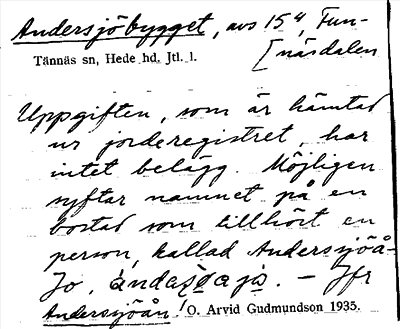 Andersjöbygget, avs 15⁴, Fun-
[näsdalen
Tännäs sn, Hede hd. Jtl. l.
Uppgiften, som är hämtad
ur jorderegistret, har
intet belägg. Möjligen
syftar namnet på en
bostad som tillhört en
person, kallad Andersjöå-
Jo. – Jfr
Andersjöån! O. Arvid Gudmundson 1935.